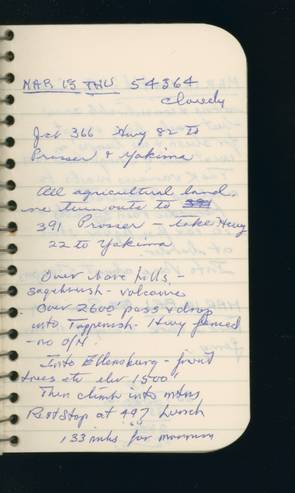 MAR 13 THU 54364
Clowdy
Jct 366 Hwy 82 to
Prosser & Yakima
All agricultural land.
we turn out to 391
391 Prosser take Hwy
22 to Yakima
Over bare hills -
sagebrush - volcanic
Over 2600' pass & drop
into Toppenish - Hwy fenced
- no O/N.
Into Ellensburg - fruit
trees etc elev 1500'
Then climb into mtns
Rest Stop at 497 Lunch
133 mls for morning